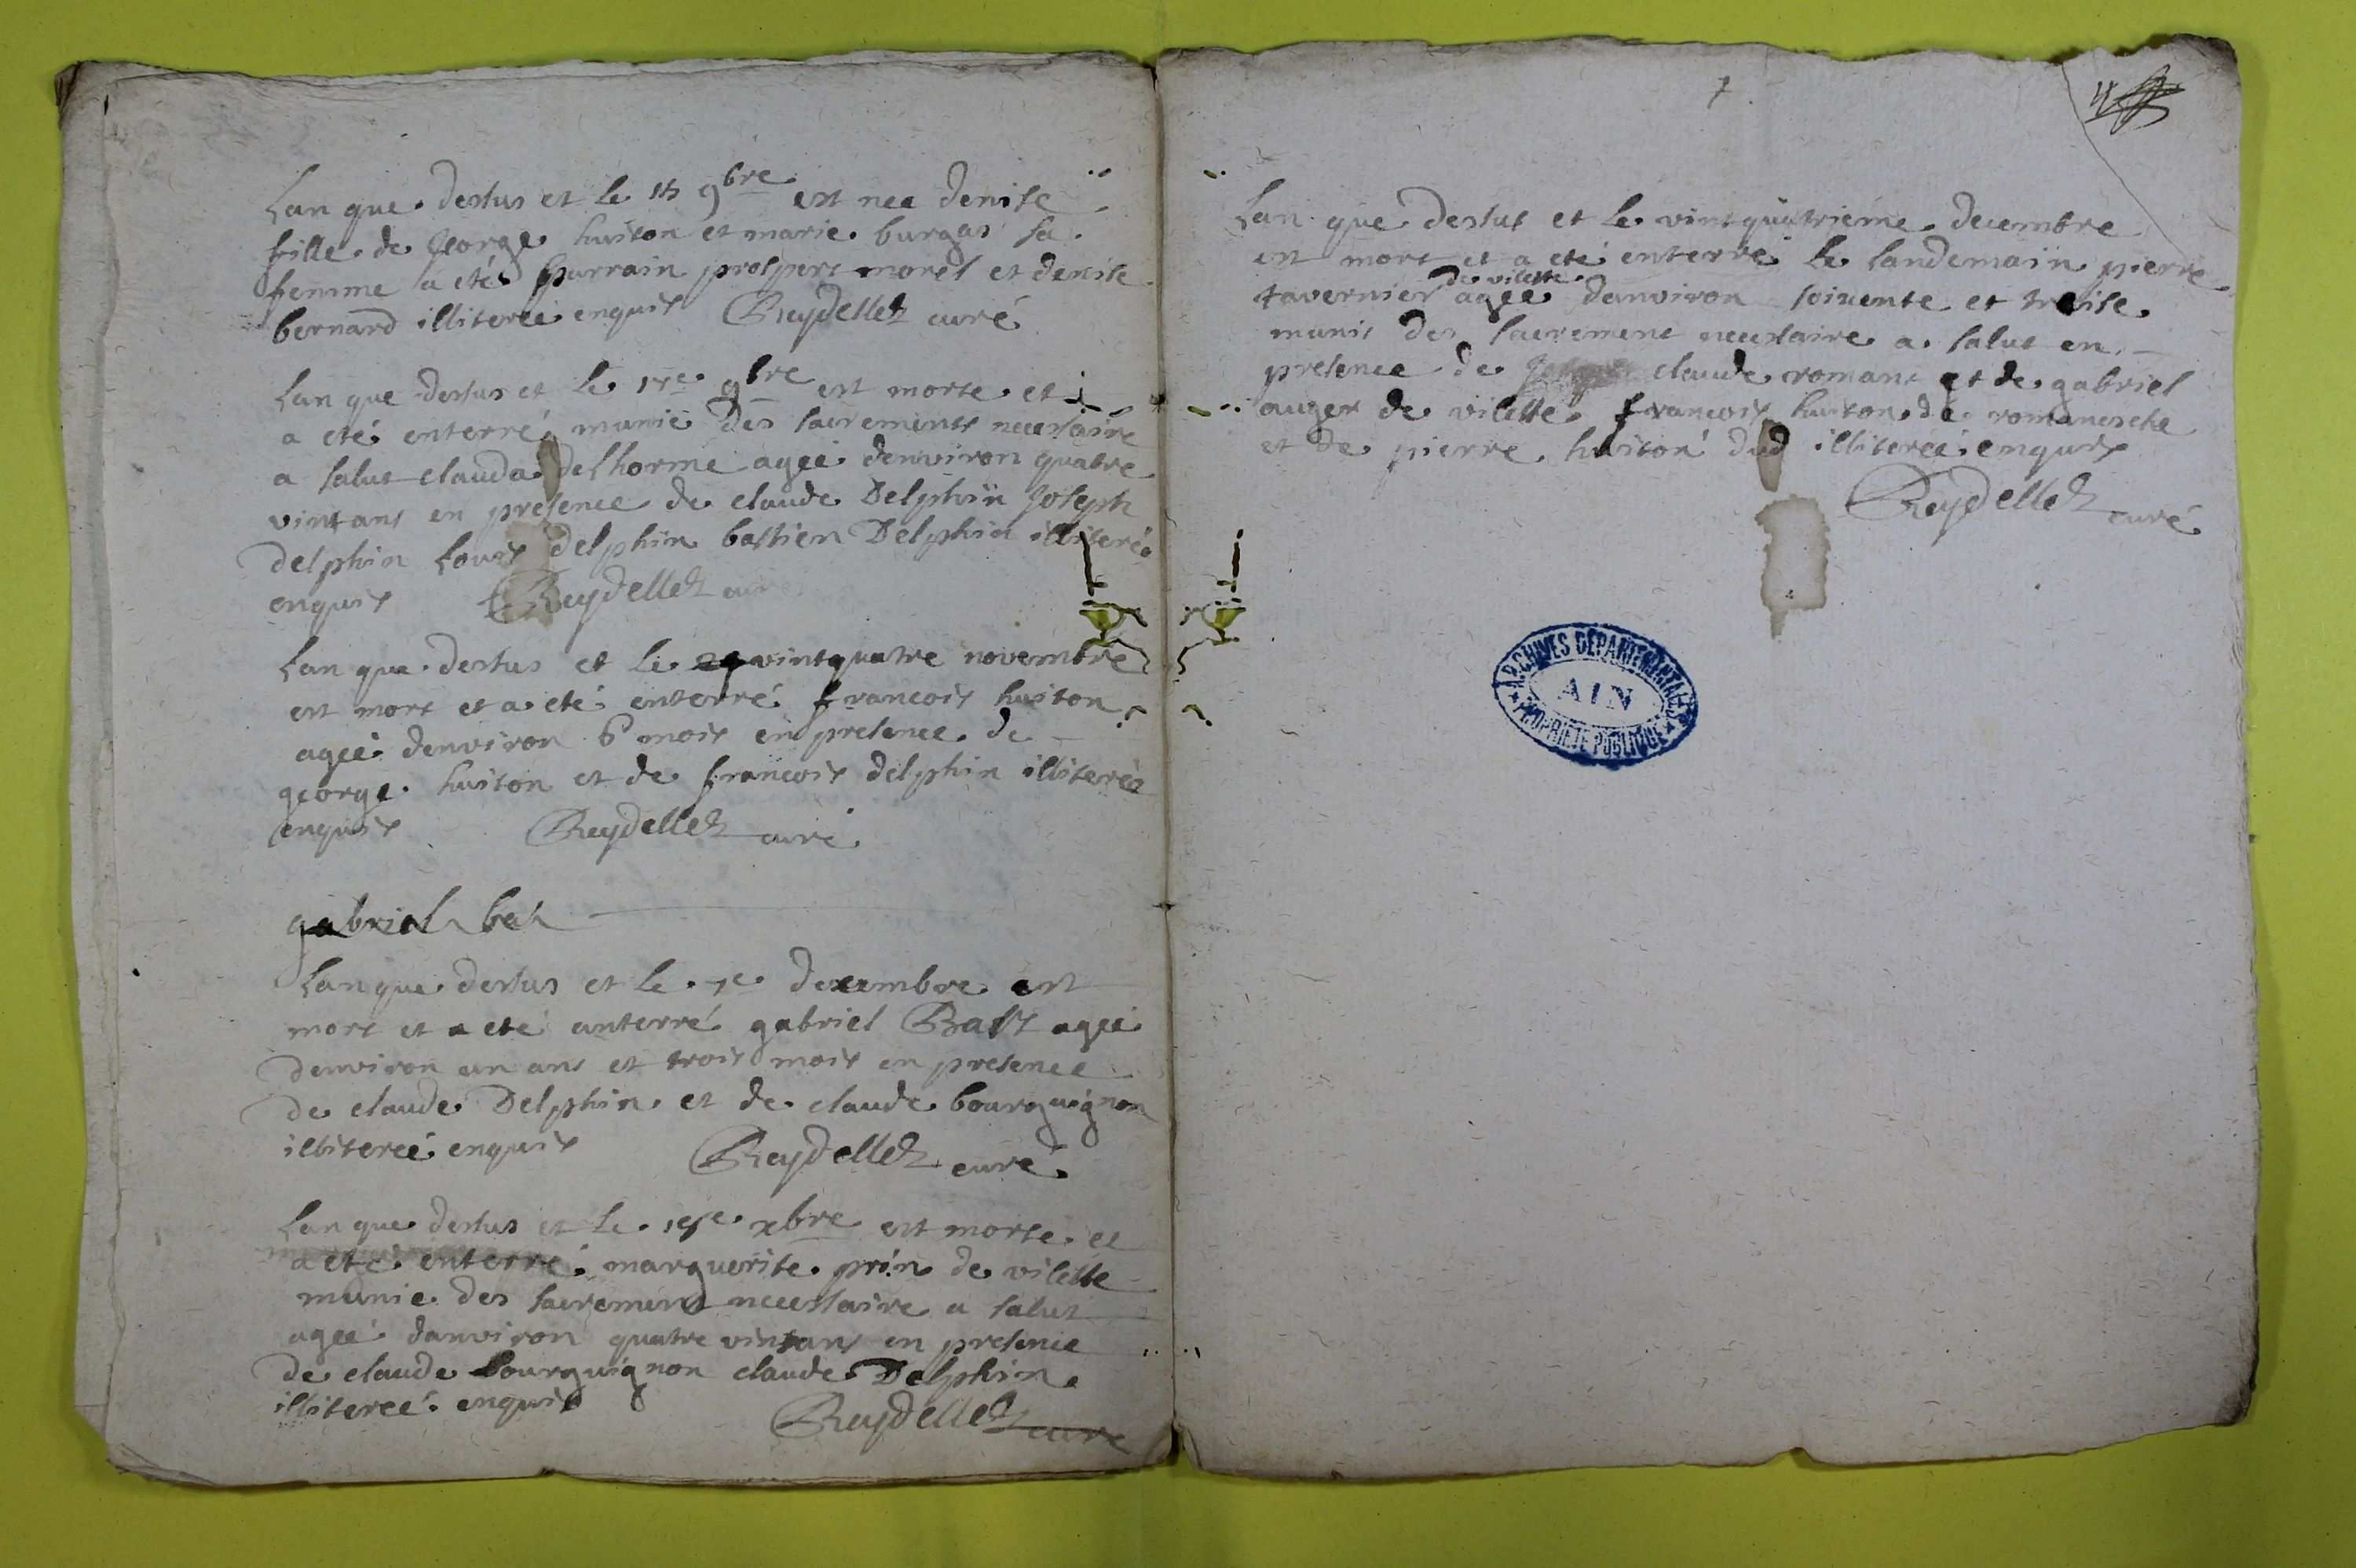 Lan que dessus et le 15 9bre est nee denise
fille de George huiton et marie burgas sa
femme a eté parrain prospert morel et denise
bernard illiteréé enquis Reydellet curé
Lan que dessus et le 9bre est morte et
a eté enterré munie des sacrements necessaire
a salut clauda delhorme ageé denviron quatre
vint ans en presence de claude Delphin Joseph
delphin Louis delphin bastien Delphin illiteré
enquis Reydellet curé
Lan que dessus et le vintquatre novembre
est mort et a eté enterré francois huiton
ageé denviron 6 mois en presence de
george huiton et de francois delphin illiteré
enquis Reydellet curé
gabriel bat
Lan que dessus et le decembre est
mort et a eté enterré gabriel Bast ageé
denviron un ans et trois mois en presence
de claude Delphin et de claude bourguignon
illitereé enquis Reydellet curé
Lan que dessus et le xbre est morte et
a eté enterré marguerite prin de vilette
munie des sacrement necessaire a salut
ageé danviron quatre vint ans en presence
de claude bourguignon claude Delphin
illitereé enquis Reydellet curé
7
Lan que dessus et le vintquatrieme decembre
est mort et a eté enterré le landemain pierre
de vilette
tavernier ageé danviron soixente et treise
munis des sacrement necessaire a salut en
presence de claude romans et de gabriel
auger de vilette francois huiton de romanesche
et de pierre huiton dud illitereé enquis
Reydellet curé
ARCHIVES DÉPARTEMENTALES
AIN
PROPRIÉTÉ PUBLIQUE